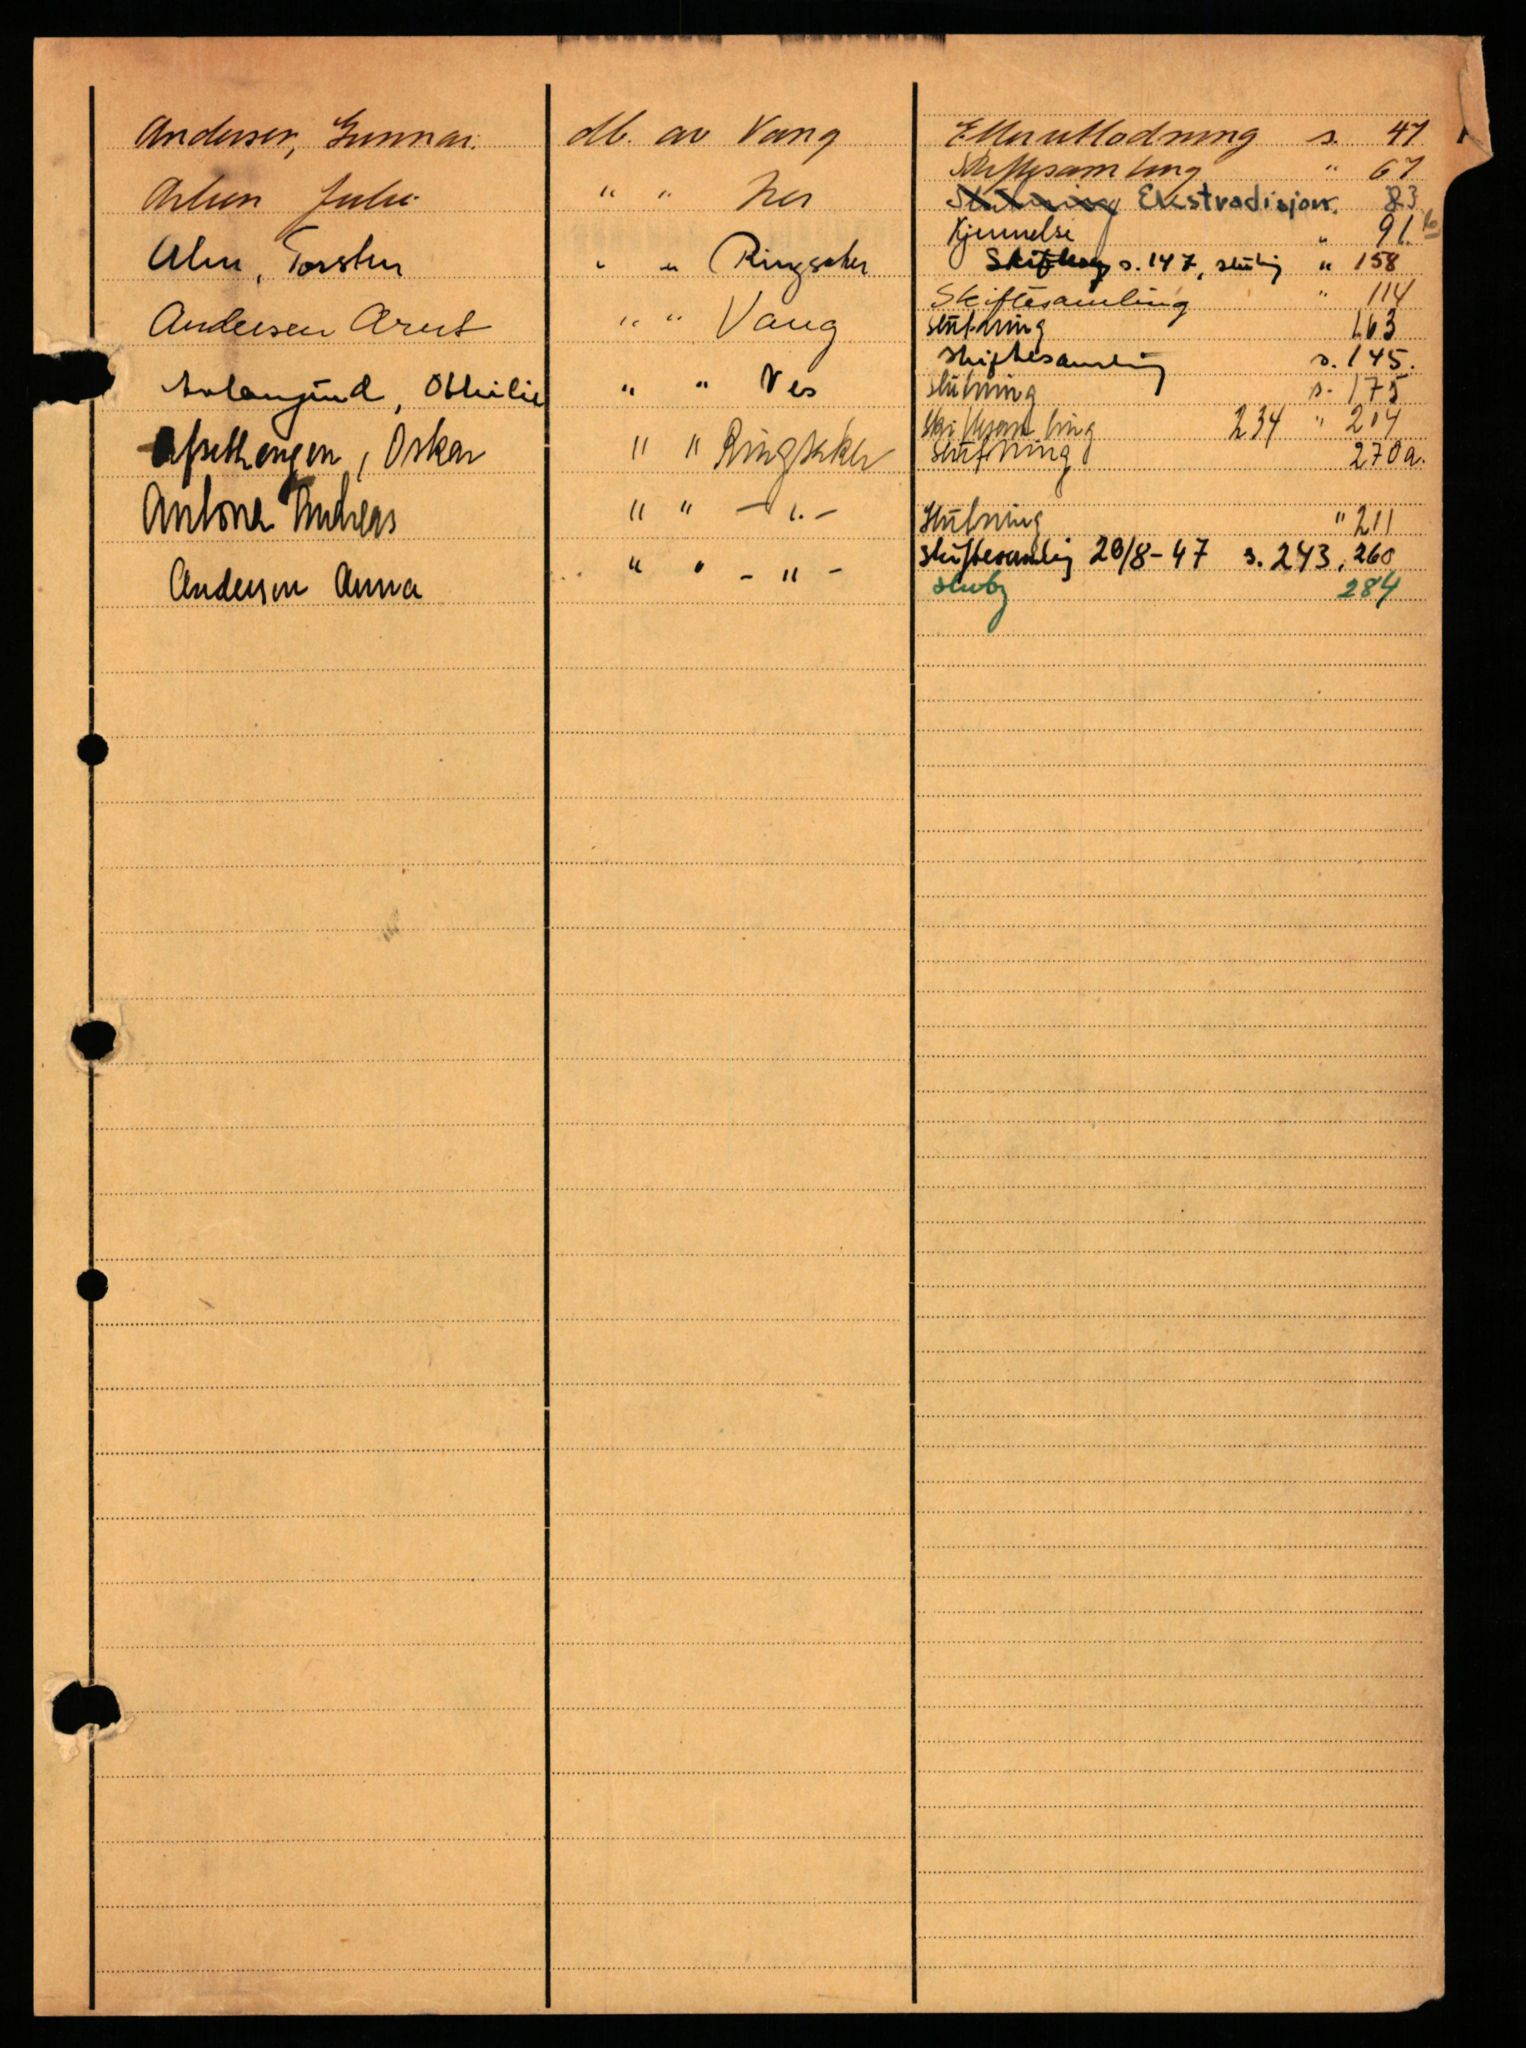 Andersen, Gunnar. db. av Vang Etterutlodning s. 47
Skiftesamling " 67
Julie " " Nes Slutning Ekstradisjon. 83
Kjennelse " 91. 16
Alm, Torsten " " Ringsaker s. 147, slutng " 158
Skiftesamling " 114
Andersen Arnt " " Vang slutning 163
skiftesamling s. 145.
Othilie " " Nes slutning s. 175
Skiftesamling 234 " 204
Oskar " " Ringsaker slutning 270a.
Anton Andreas " " - " - Slutning " 211
skiftesamlig 20/8-47 s. 243, 260
Andersen Anna " " - " - 284